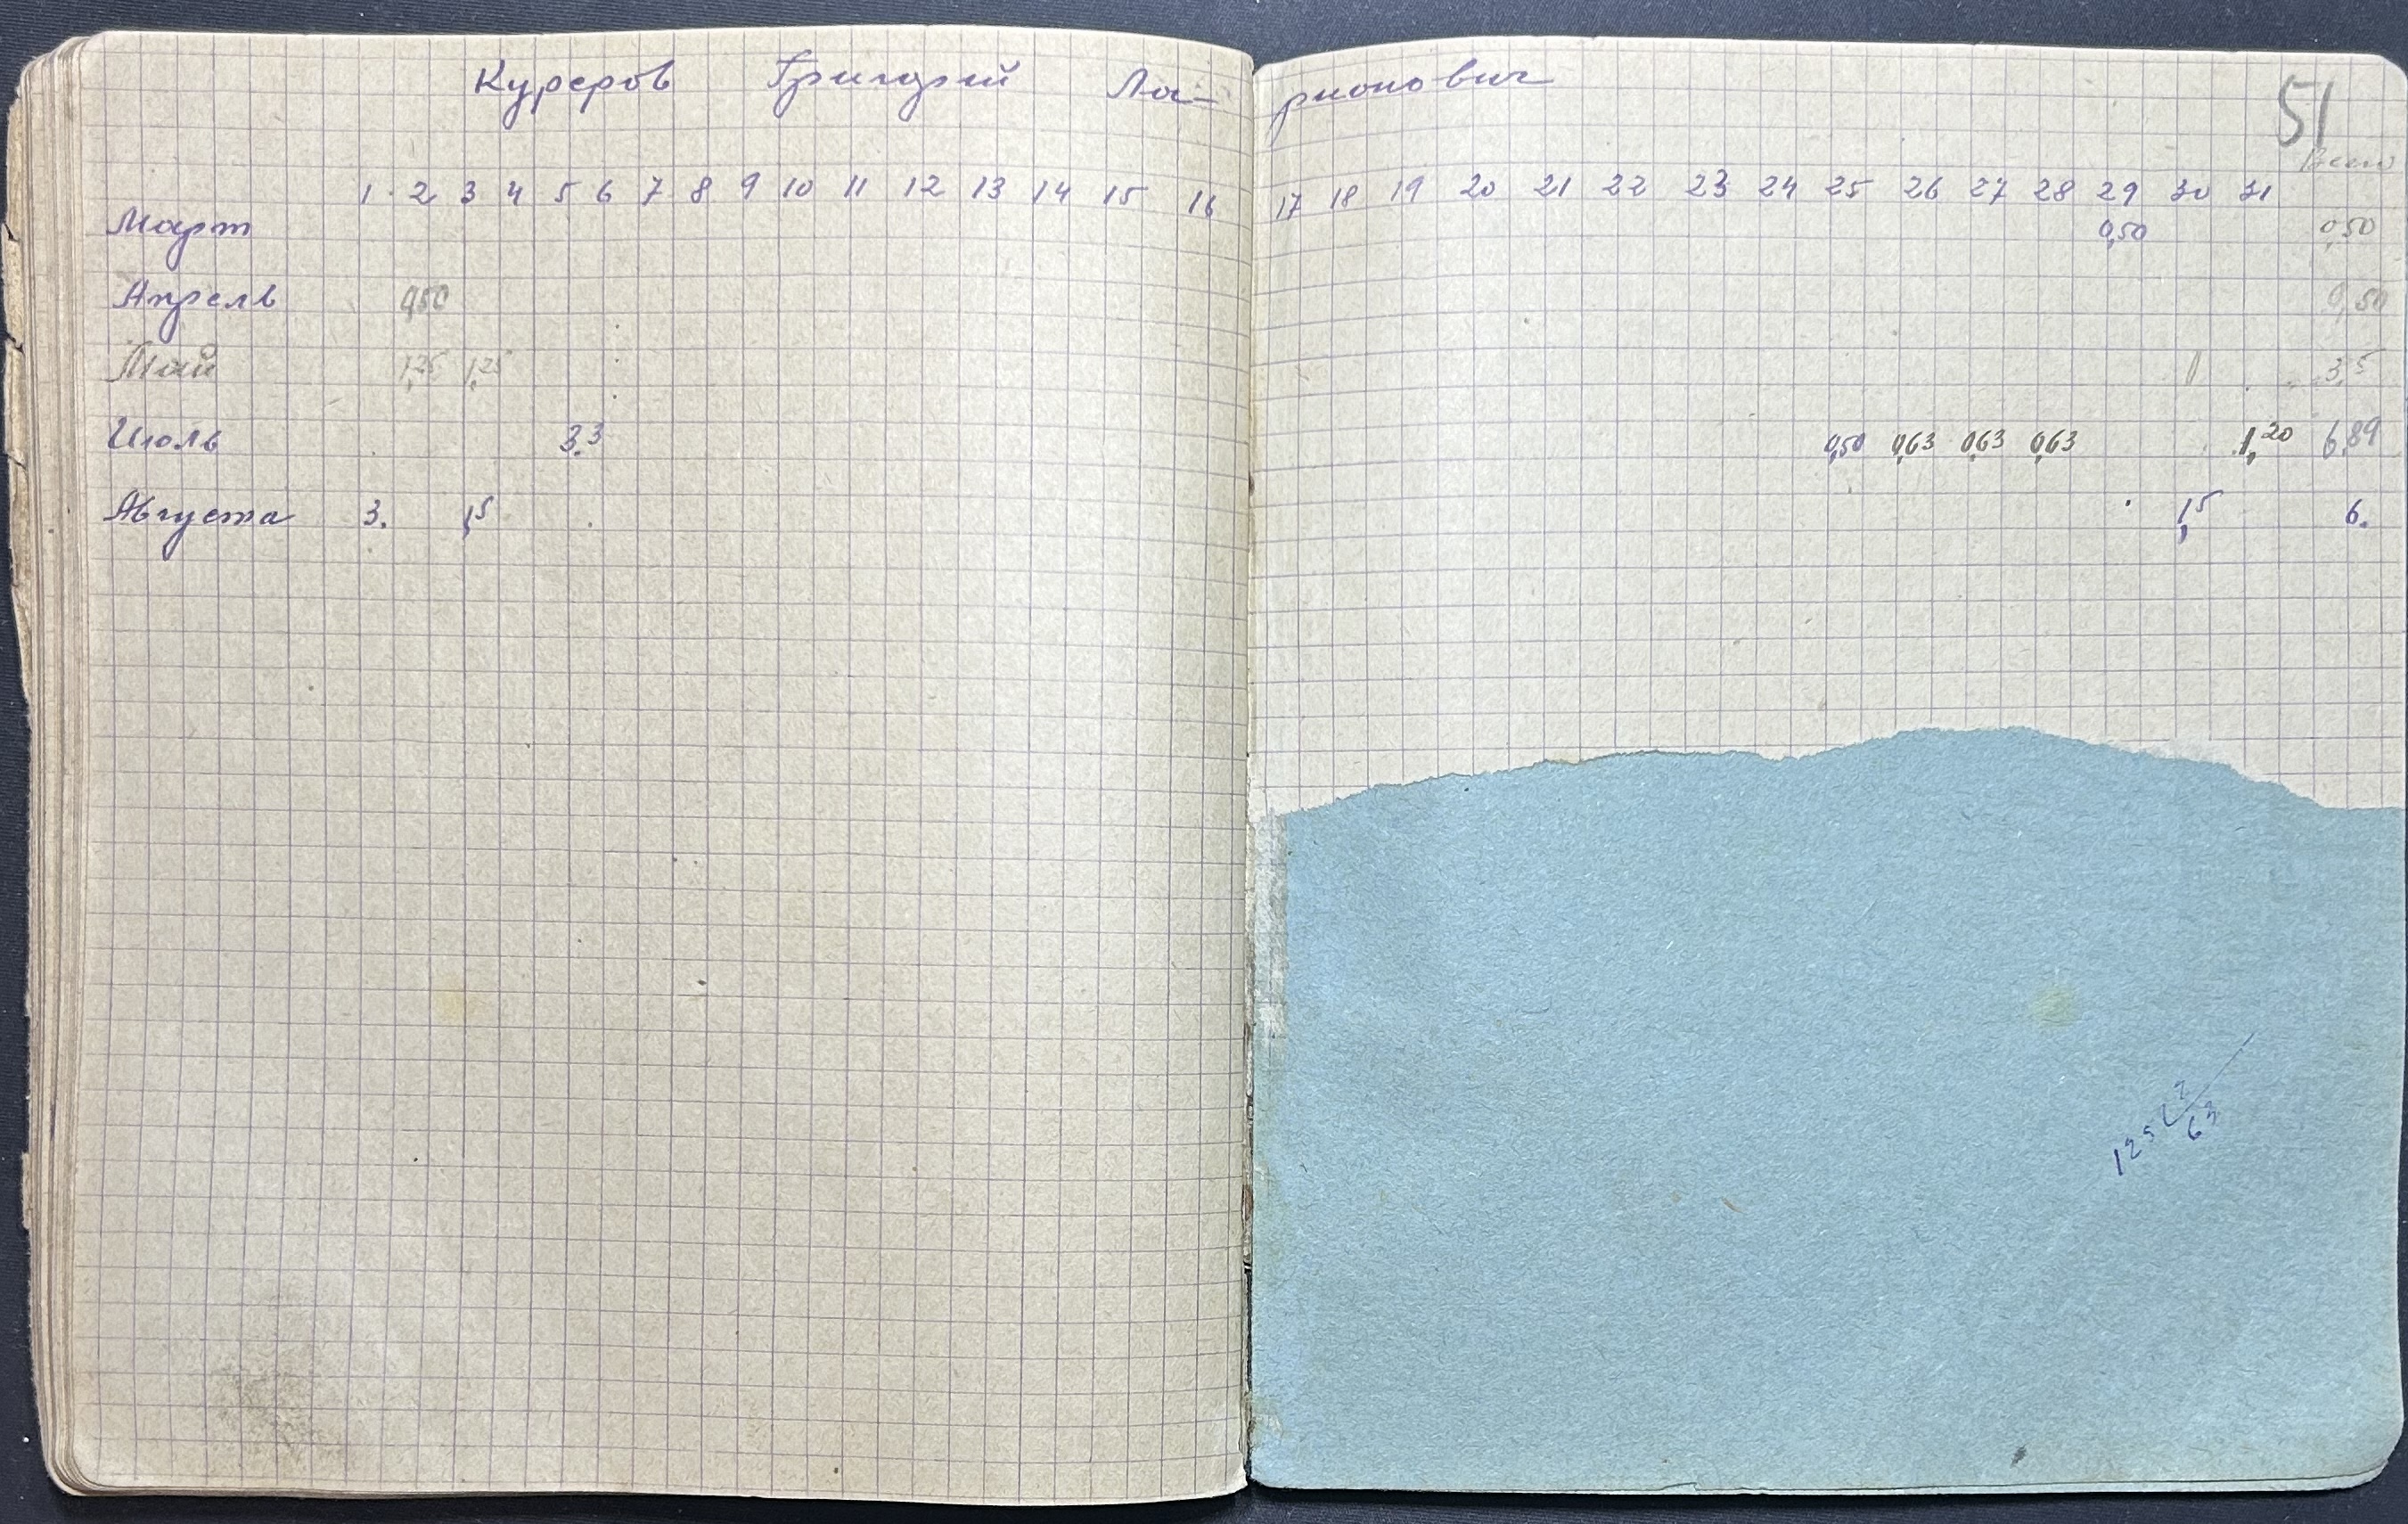 Куреров Григорий Ла- рионович
51
Всего
1 2 3 4 5 6 7 8 9 10 11 12 13 14 15 16 17 18 19 20 21 22 23 24 25 26 27 28 29 30 31
Март 0,50 0,50
Апрель 0,50 0,50
Май 1,25 1,25 1 3,5
Июль 3,3 0,50 0,63 0,63 0,63 1,20 6,89
Августа 3. 1,5 1,5 6.
125 2
63